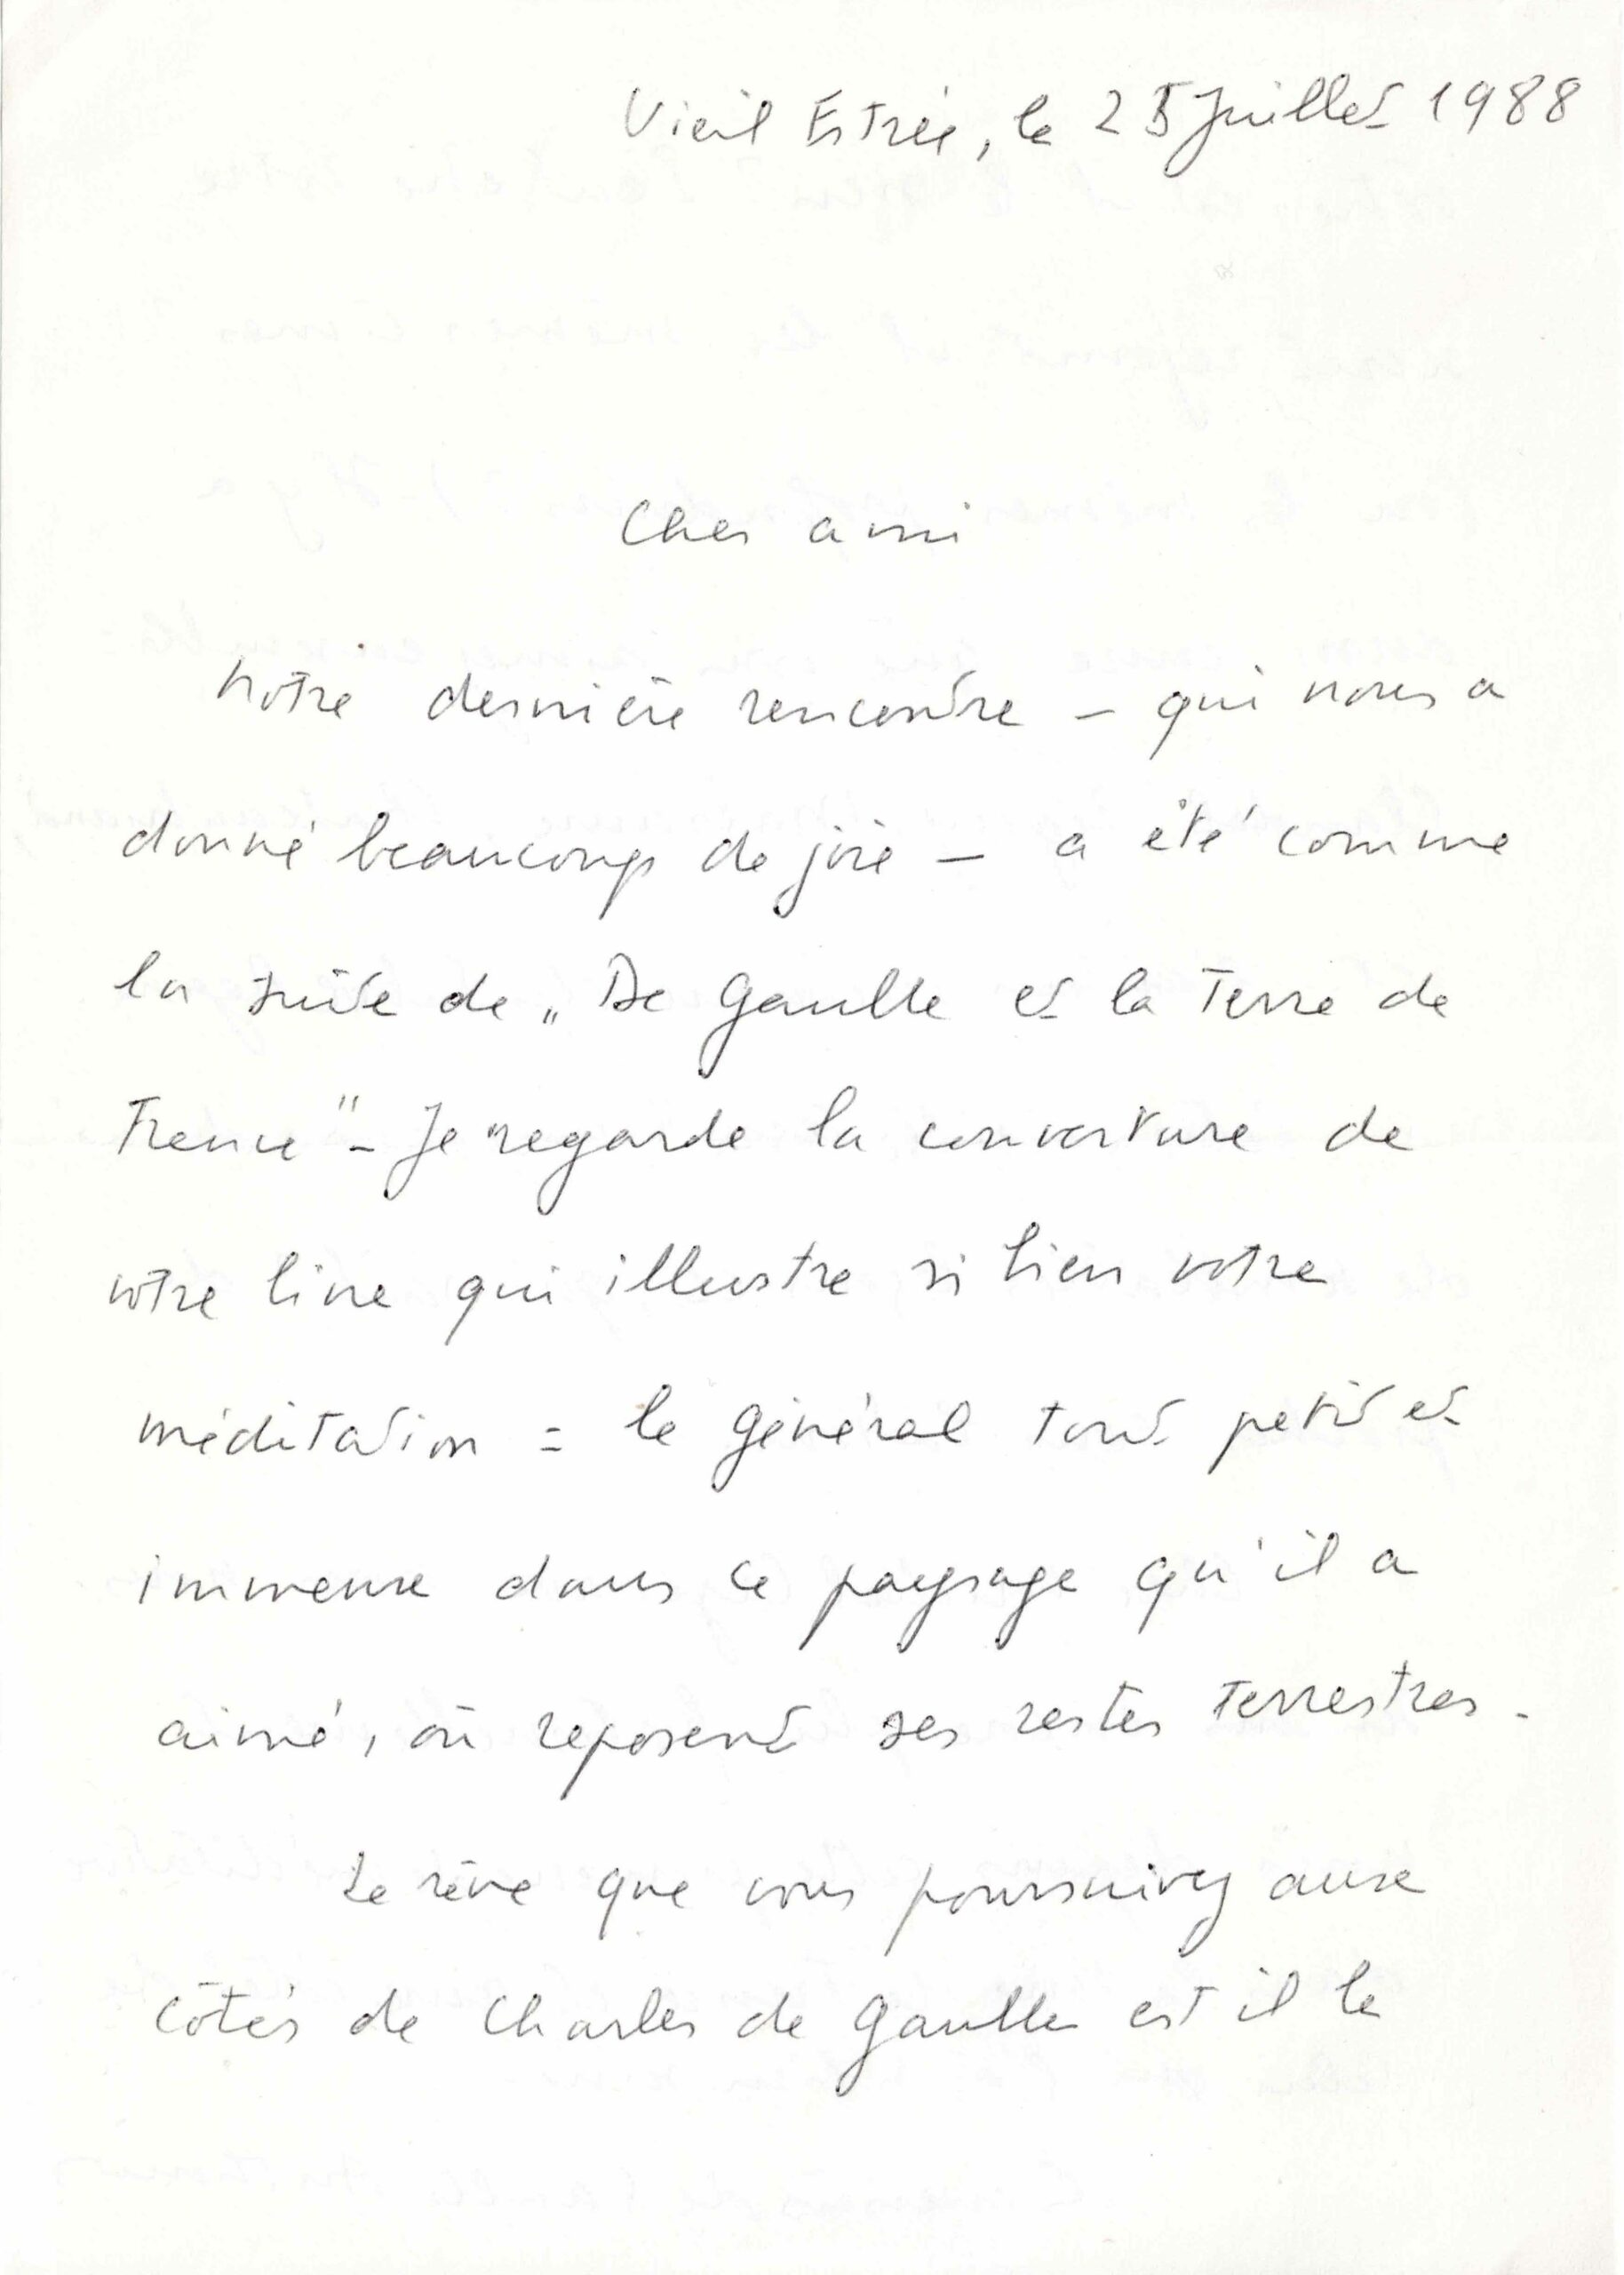 Vieil Estrée, le 25 Juillet 1988
Cher ami
Notre dernière rencontre – qui nous a
donné beaucoup de joie – a été comme
la suite de „ De Gaulle et la Terre de
France " – Je regarde la couverture de
votre livre qui illustre si bien votre
méditation = le Général tout petit et
immense dans ce paysage qu'il a
aimé, où reposent ses restes terrestres.
Le rêve que vous poursuivez aux
côtés de Charles de Gaulle est il le